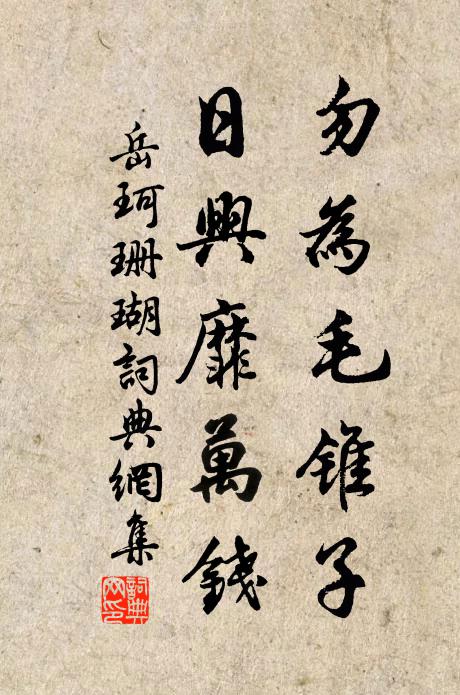 勿為毛錐子
日興靡萬錢
岳珂珊瑚詞典網集
詞典網印